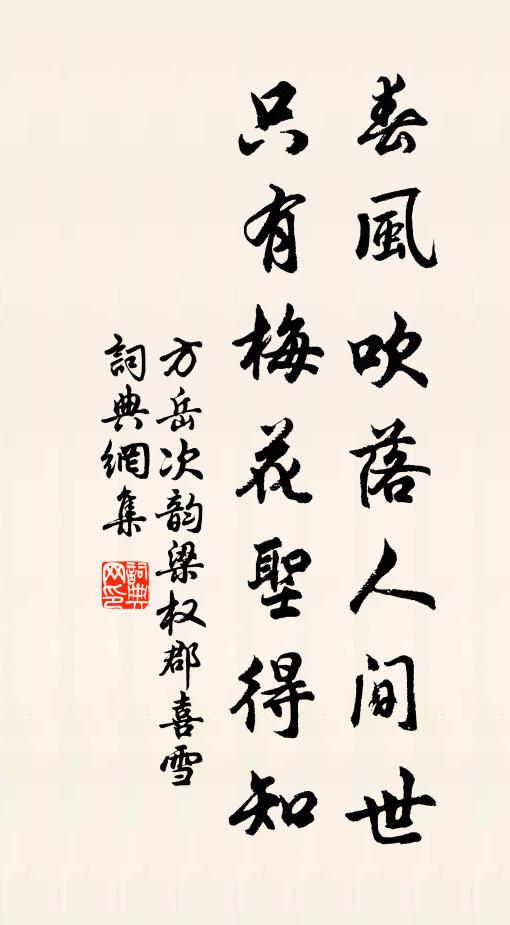 春風吹落人間世
只有梅花聖得知
方岳次韵梁权郡喜雪
詞典網集
詞典网印